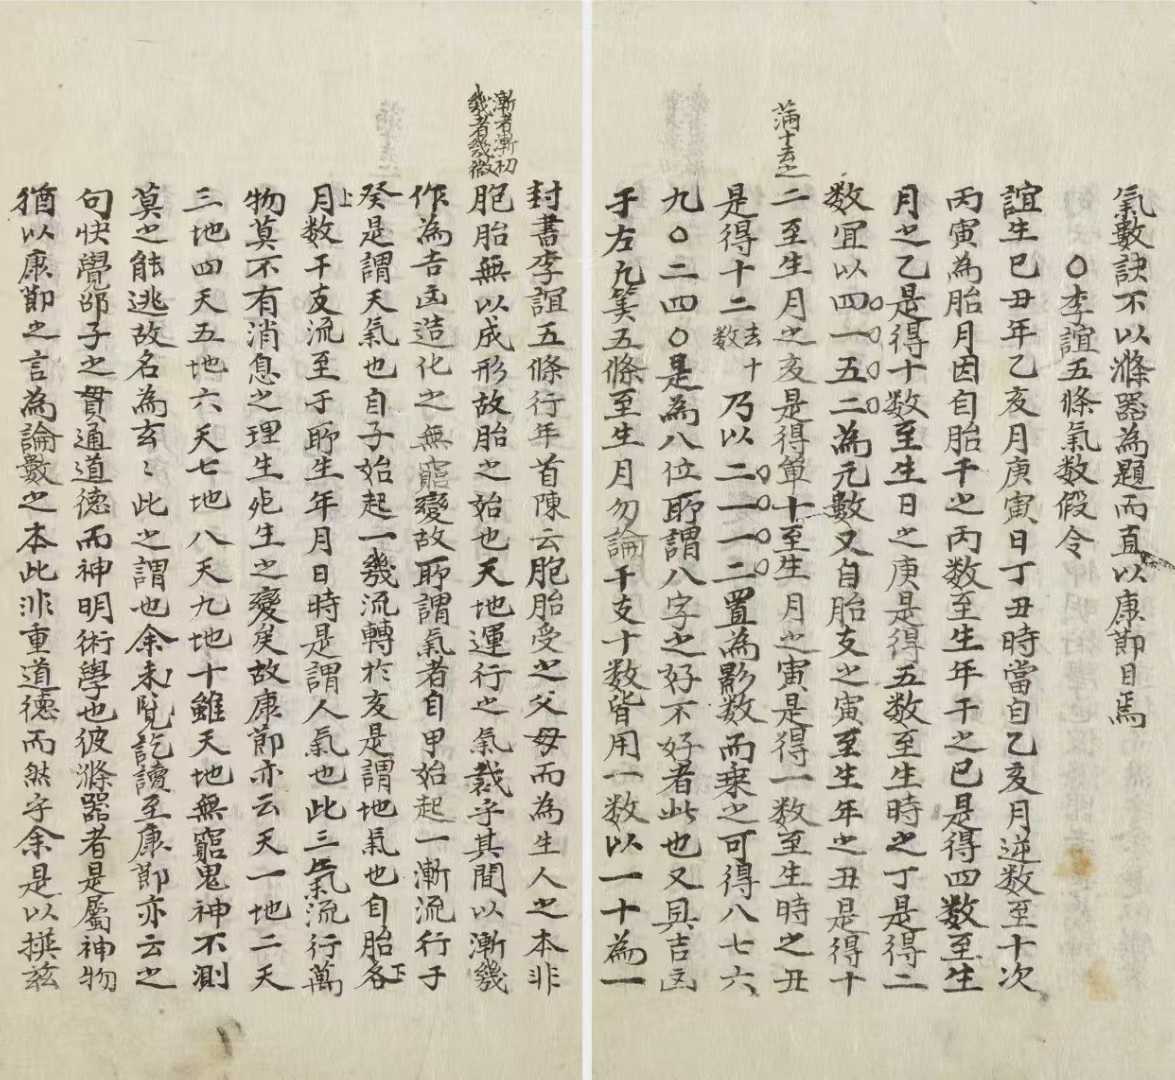 漸者漸初
幾者幾微
封書李誼五條行年首陳云胞胎受之父母而為生人之本非
胞胎無以成形故胎之始也天地運行之氣裁乎其間以漸幾
作為吉凶造化之無窮變故所謂氣者自甲始起一漸流行于
癸是謂天氣也自子始起一幾流轉於亥是謂地氣也自胎各下
上月数干支流至于所生年月日時是謂人氣也此三氣流行萬
物莫不有消息之理生死生之變矣故康節亦云天一地二天
三地四天五地六天七地八天九地十雖天地無窮鬼神不測
莫之能逃故名為玄〻此之謂也余未覽訖讀至康節亦云之
句快覺邵子之貫通道德而神明術學也彼滌器者是屬神物
猶以康節之言為論數之本此非重道德而然乎余是以撰玆
氣數訣不以滌器為題而直以康節目焉
〇李誼五條氣数假令
誼生巳丑年乙亥月庚寅日丁丑時當自乙亥月逆数至十次
丙寅為胎月因自胎干之丙数至生年干之巳是得四数至生
月之乙是得十数至生日之庚是得五数至生時之丁是得二
数宜以四〇一〇五〇二〇為元數又自胎支之寅至生年之丑是得十
滿十去之
二至生月之亥是得單十至生月之寅是得一数至生時之丑
是得十二数去十乃以二〇一〇一〇二〇置為影数而乗之可得八七六
九〇二四〇是為八位所謂八字之好不好者此也又具吉凶
于左凡筭五條至生月勿論干支十数皆用一数以一十為一